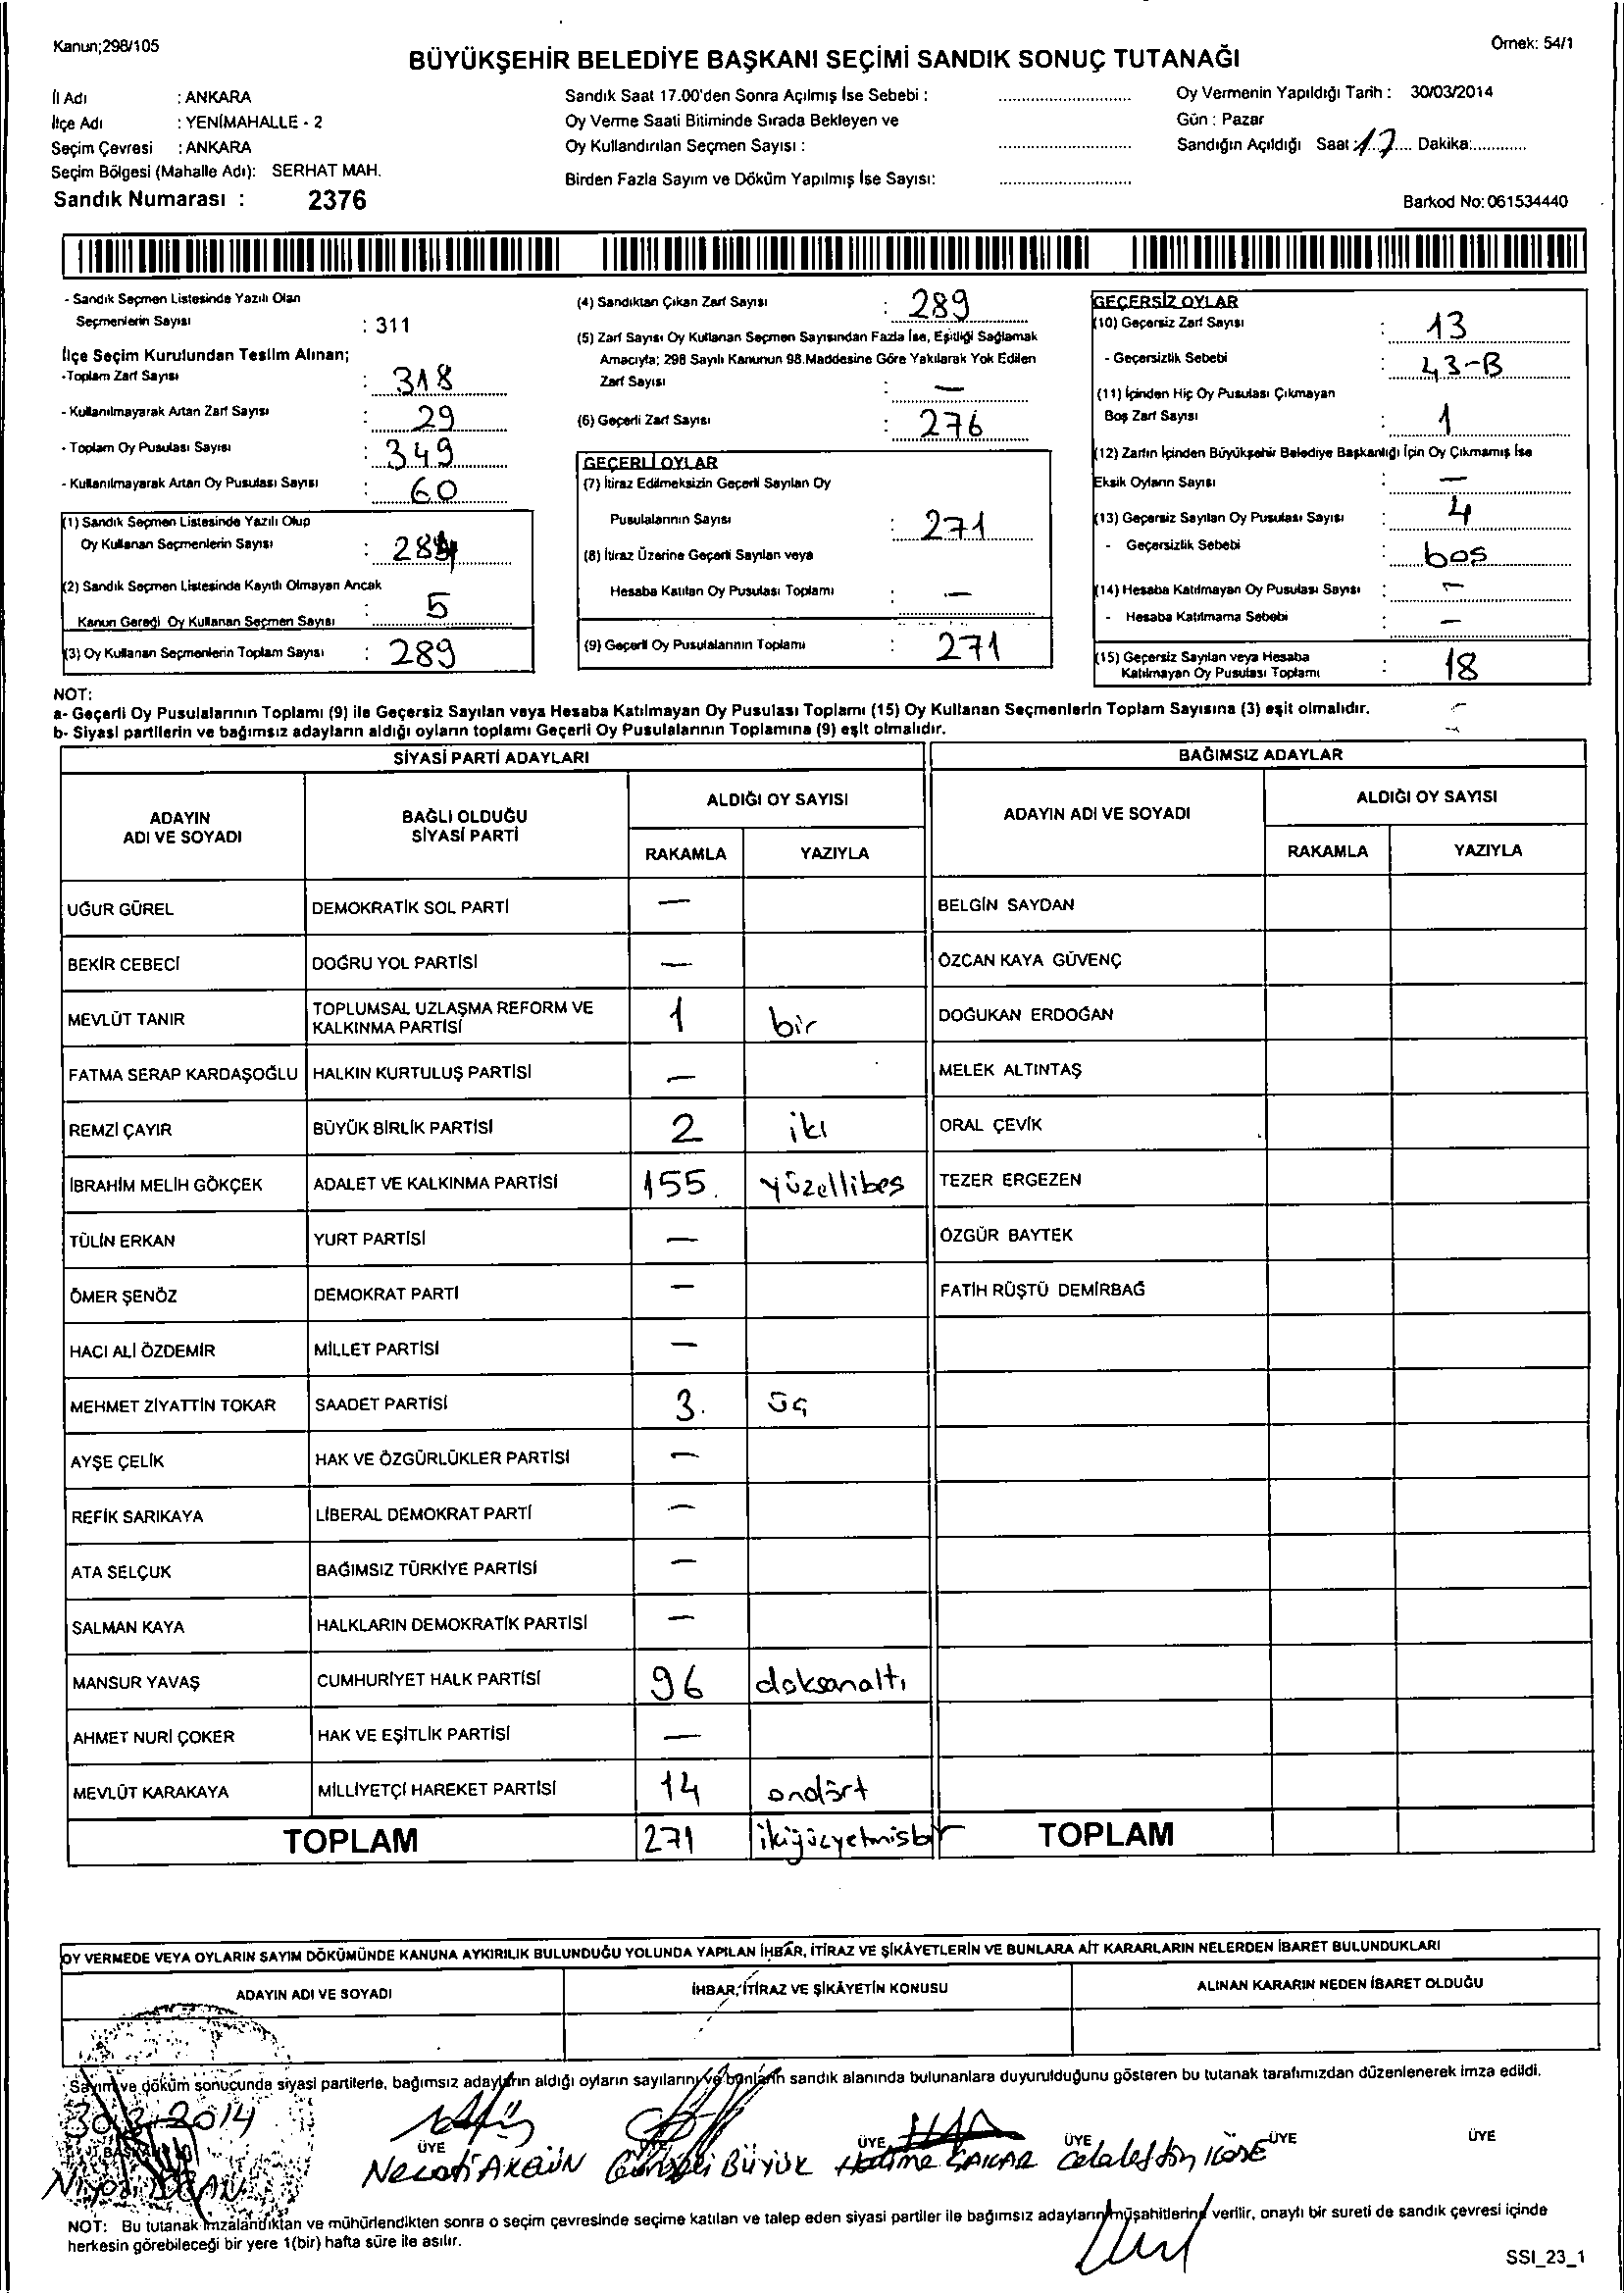 Kanun;298/105
Örnek: 54/1
BÜYÜKŞEHİR BELEDİYE BAŞKANI SEÇİMİ SANDIK SONUÇ TUTANAĞI
İl Adı : ANKARA
İlçe Adı : YENİMAHALLE - 2
Seçim Çevresi : ANKARA
Seçim Bölgesi (Mahalle Adı): SERHAT MAH.
Sandık Numarası : 2376
Sandık Saat 17.00'den Sonra Açılmış İse Sebebi :
Oy Verme Saati Bitiminde Sırada Bekleyen ve
Oy Kullandırılan Seçmen Sayısı :
Birden Fazla Sayım ve Döküm Yapılmış İse Sayısı:
Oy Vermenin Yapıldığı Tarih : 30/03/2014
Gün : Pazar
Sandığın Açıldığı Saat : 17 Dakika:
Barkod No: 061534440
- Sandık Seçmen Listesinde Yazılı Olan
Seçmenlerin Sayısı : 311
İlçe Seçim Kurulundan Teslim Alınan;
-Toplam Zarf Sayısı : 318
- Kullanılmayarak Artan Zarf Sayısı : 29
- Toplam Oy Pusulası Sayısı : 349
- Kullanılmayarak Artan Oy Pusulası Sayısı : 60
(1) Sandık Seçmen Listesinde Yazılı Olup
Oy Kullanan Seçmenlerin Sayısı : 284
(2) Sandık Seçmen Listesinde Kayıtlı Olmayan Ancak
Kanun Gereği Oy Kullanan Seçmen Sayısı : 5
(3) Oy Kullanan Seçmenlerin Toplam Sayısı : 289
(4) Sandıktan Çıkan Zarf Sayısı : 289
(5) Zarf Sayısı Oy Kullanan Seçmen Sayısından Fazla İse, Eşitliği Sağlamak
Amacıyla; 298 Sayılı Kanunun 98.Maddesine Göre Yakılarak Yok Edilen
Zarf Sayısı : —
(6) Geçerli Zarf Sayısı : 276
GEÇERLİ OYLAR
(7) İtiraz Edilmeksizin Geçerli Sayılan Oy
Pusulalarının Sayısı : 271
(8) İtiraz Üzerine Geçerli Sayılan veya
Hesaba Katılan Oy Pusulası Toplamı : —
(9) Geçerli Oy Pusulalarının Toplamı : 271
GEÇERSİZ OYLAR
(10) Geçersiz Zarf Sayısı : 13
- Geçersizlik Sebebi : 43-B
(11) İçinden Hiç Oy Pusulası Çıkmayan
Boş Zarf Sayısı : 1
(12) Zarfın İçinden Büyükşehir Belediye Başkanlığı İçin Oy Çıkmamış İse
Eksik Oyların Sayısı : —
(13) Geçersiz Sayılan Oy Pusulası Sayısı : 4
- Geçersizlik Sebebi : bos
(14) Hesaba Katılmayan Oy Pusulası Sayısı : —
- Hesaba Katılmama Sebebi : —
(15) Geçersiz Sayılan veya Hesaba
Katılmayan Oy Pusulası Toplamı : 18
NOT:
a- Geçerli Oy Pusulalarının Toplamı (9) ile Geçersiz Sayılan veya Hesaba Katılmayan Oy Pusulası Toplamı (15) Oy Kullanan Seçmenlerin Toplam Sayısına (3) eşit olmalıdır.
b- Siyasi partilerin ve bağımsız adayların aldığı oyların toplamı Geçerli Oy Pusulalarının Toplamına (9) eşit olmalıdır.
SİYASİ PARTİ ADAYLARI
BAĞIMSIZ ADAYLAR
ADAYIN ADI VE SOYADI
BAĞLI OLDUĞU SİYASİ PARTİ
ALDIĞI OY SAYISI
RAKAMLA YAZIYLA
ADAYIN ADI VE SOYADI
ALDIĞI OY SAYISI
RAKAMLA YAZIYLA
UĞUR GÜREL DEMOKRATİK SOL PARTİ — BELGİN SAYDAN
BEKİR CEBECİ DOĞRU YOL PARTİSİ — ÖZCAN KAYA GÜVENÇ
MEVLÜT TANIR TOPLUMSAL UZLAŞMA REFORM VE KALKINMA PARTİSİ 1 bir DOĞUKAN ERDOĞAN
FATMA SERAP KARDAŞOĞLU HALKIN KURTULUŞ PARTİSİ — MELEK ALTINTAŞ
REMZİ ÇAYIR BÜYÜK BİRLİK PARTİSİ 2 iki ORAL ÇEVİK
İBRAHİM MELİH GÖKÇEK ADALET VE KALKINMA PARTİSİ 155 yüzellibes TEZER ERGEZEN
TÜLİN ERKAN YURT PARTİSİ — ÖZGÜR BAYTEK
ÖMER ŞENÖZ DEMOKRAT PARTİ — FATİH RÜŞTÜ DEMİRBAĞ
HACI ALİ ÖZDEMİR MİLLET PARTİSİ —
MEHMET ZİYATTİN TOKAR SAADET PARTİSİ 3. üç
AYŞE ÇELİK HAK VE ÖZGÜRLÜKLER PARTİSİ —
REFİK SARIKAYA LİBERAL DEMOKRAT PARTİ —
ATA SELÇUK BAĞIMSIZ TÜRKİYE PARTİSİ —
SALMAN KAYA HALKLARIN DEMOKRATİK PARTİSİ —
MANSUR YAVAŞ CUMHURİYET HALK PARTİSİ 96 doksanaltı
AHMET NURİ ÇOKER HAK VE EŞİTLİK PARTİSİ —
MEVLÜT KARAKAYA MİLLİYETÇİ HAREKET PARTİSİ 14 ondört
TOPLAM 271 ikiyüzyetmisbir TOPLAM
OY VERMEDE VEYA OYLARIN SAYIM DÖKÜMÜNDE KANUNA AYKIRILIK BULUNDUĞU YOLUNDA YAPILAN İHBAR, İTİRAZ VE ŞİKÂYETLERİN VE BUNLARA AİT KARARLARIN NELERDEN İBARET BULUNDUKLARI
ADAYIN ADI VE SOYADI İHBAR, İTİRAZ VE ŞİKÂYETİN KONUSU ALINAN KARARIN NEDEN İBARET OLDUĞU
Sayım ve döküm sonucunda siyasi partilerle, bağımsız adayların aldığı oyların sayılarını ve bunların sandık alanında bulunanlara duyurulduğunu gösteren bu tutanak tarafımızdan düzenlenerek imza edildi.
30.3.2014
ÜYE ÜYE ÜYE ÜYE ÜYE
Necati AKGÜN BÜYÜK Halime ŞAKAR Celalettin KÖSE
NOT: Bu tutanak imzalandıktan ve mühürlendikten sonra o seçim çevresinde seçime katılan ve talep eden siyasi partiler ile bağımsız adayların müşahitlerine verilir, onaylı bir sureti de sandık çevresi içinde
herkesin görebileceği bir yere 1(bir) hafta süre ile asılır.
SSI_23_1